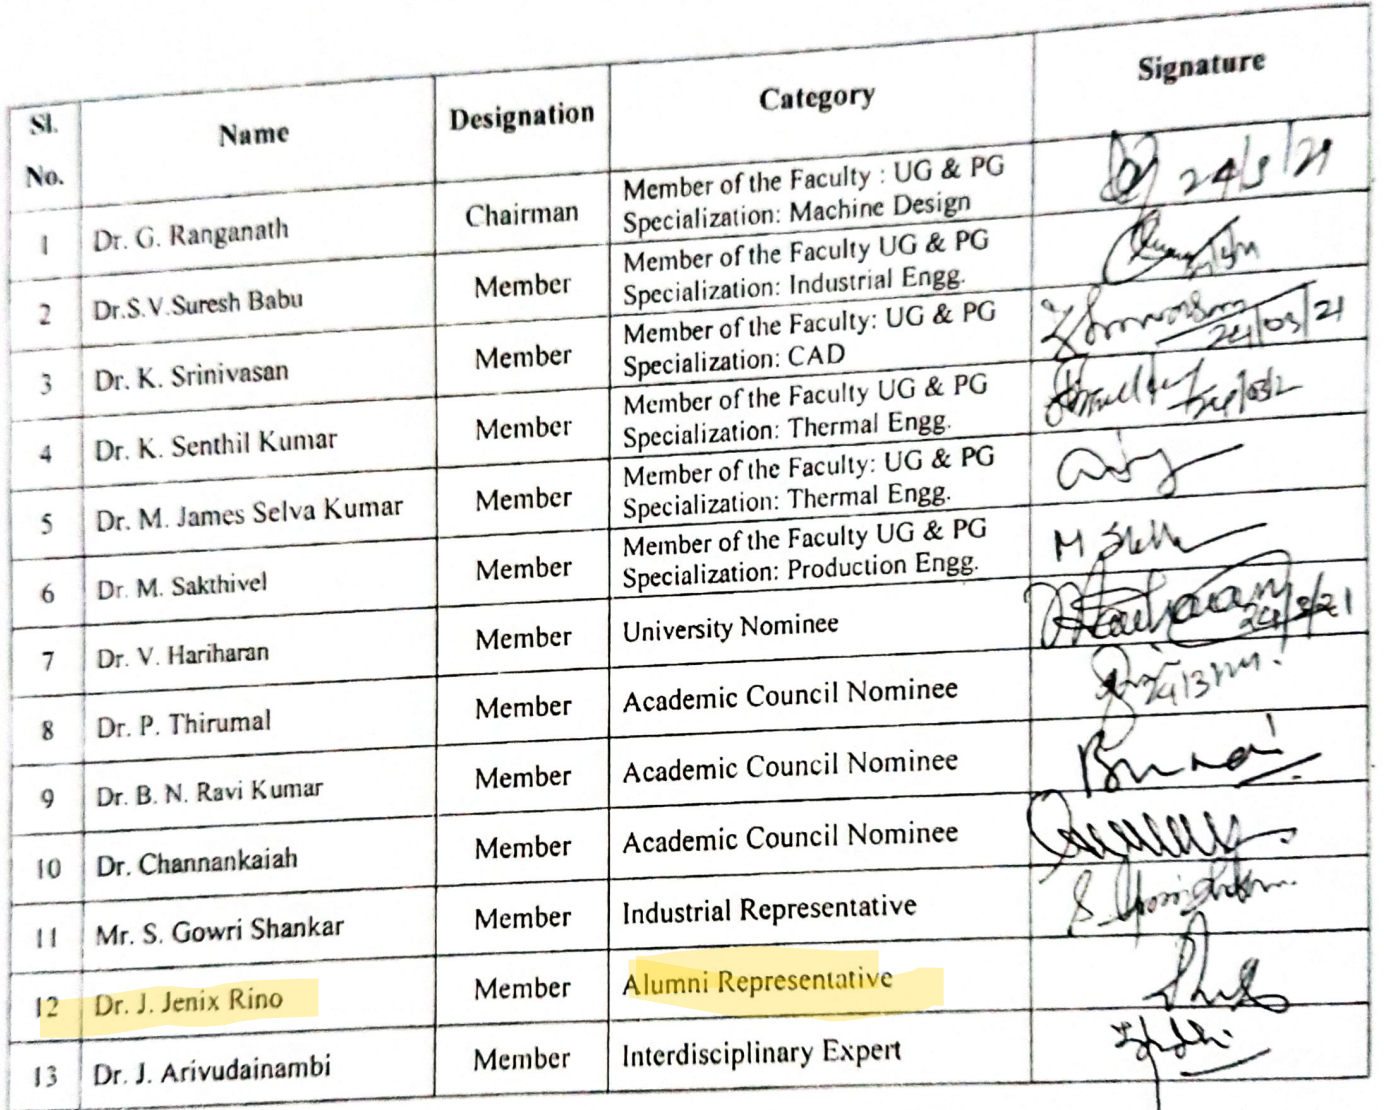 Sl. No. Name Designation Category Signature
1 Dr. G. Ranganath Chairman Member of the Faculty : UG & PG
Specialization: Machine Design
2 Dr.S.V.Suresh Babu Member Member of the Faculty UG & PG
Specialization: Industrial Engg.
3 Dr. K. Srinivasan Member Member of the Faculty: UG & PG
Specialization: CAD 24/03/21
4 Dr. K. Senthil Kumar Member Member of the Faculty UG & PG
Specialization: Thermal Engg.
5 Dr. M. James Selva Kumar Member Member of the Faculty: UG & PG
Specialization: Thermal Engg.
6 Dr. M. Sakthivel Member Member of the Faculty UG & PG
Specialization: Production Engg.
7 Dr. V. Hariharan Member University Nominee 24/3/21
8 Dr. P. Thirumal Member Academic Council Nominee
9 Dr. B. N. Ravi Kumar Member Academic Council Nominee
10 Dr. Channankaiah Member Academic Council Nominee
11 Mr. S. Gowri Shankar Member Industrial Representative
12 Dr. J. Jenix Rino Member Alumni Representative
13 Dr. J. Arivudainambi Member Interdisciplinary Expert